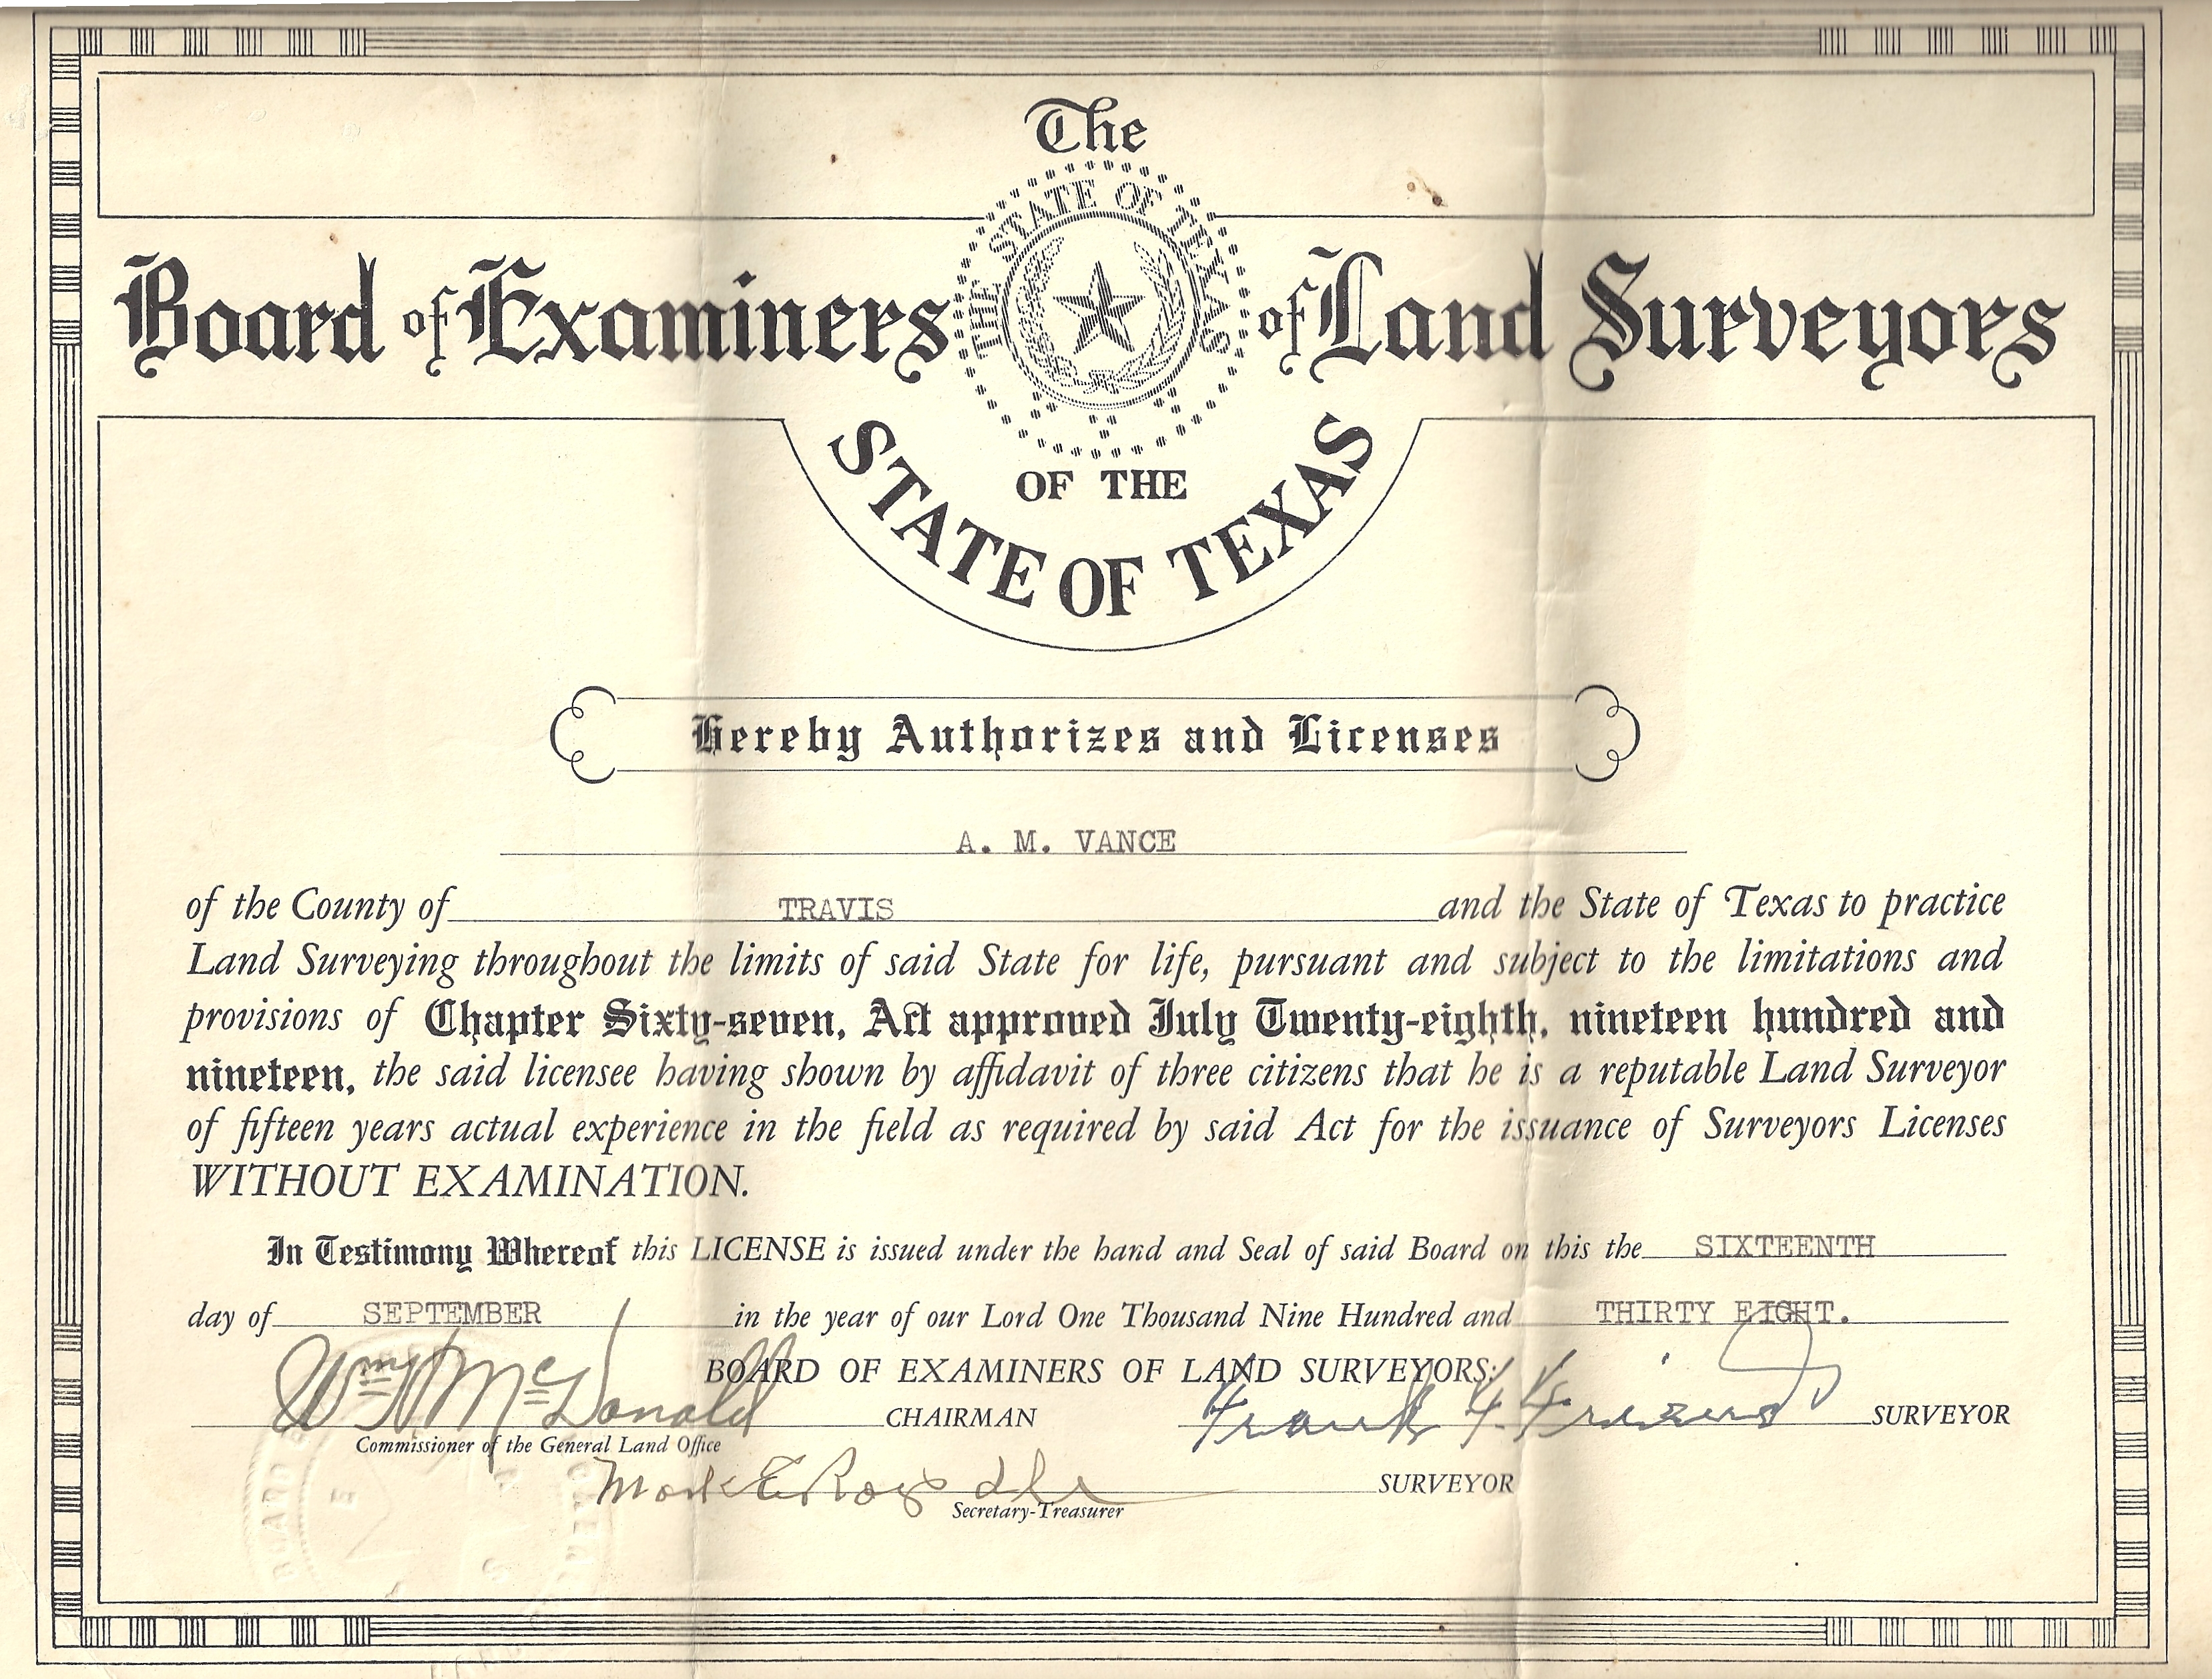 The
THE STATE OF TEXAS
Board of Examiners of Land Surveyors
OF THE
STATE OF TEXAS
Hereby Authorizes and Licenses
A. M. VANCE
of the County of TRAVIS and the State of Texas to practice
Land Surveying throughout the limits of said State for life, pursuant and subject to the limitations and
provisions of Chapter Sixty-seven, Act approved July Twenty-eighth, nineteen hundred and
nineteen, the said licensee having shown by affidavit of three citizens that he is a reputable Land Surveyor
of fifteen years actual experience in the field as required by said Act for the issuance of Surveyors Licenses
WITHOUT EXAMINATION.
In Testimony Whereof this LICENSE is issued under the hand and Seal of said Board on this the SIXTEENTH
day of SEPTEMBER in the year of our Lord One Thousand Nine Hundred and THIRTY EIGHT.
BOARD OF EXAMINERS OF LAND SURVEYORS:
Wm H McDonald CHAIRMAN Frank F. SURVEYOR
Commissioner of the General Land Office
Mark E SURVEYOR
Secretary-Treasurer